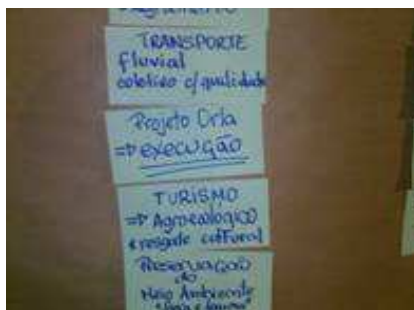 TRANSPORTE
fluvial
coletivo c/qualidade
Projeto Orla
⇒ execução
TURISMO
⇒ Agroecológico
e resgate cultural
PRESERVAÇÃO
do
Meio Ambiente